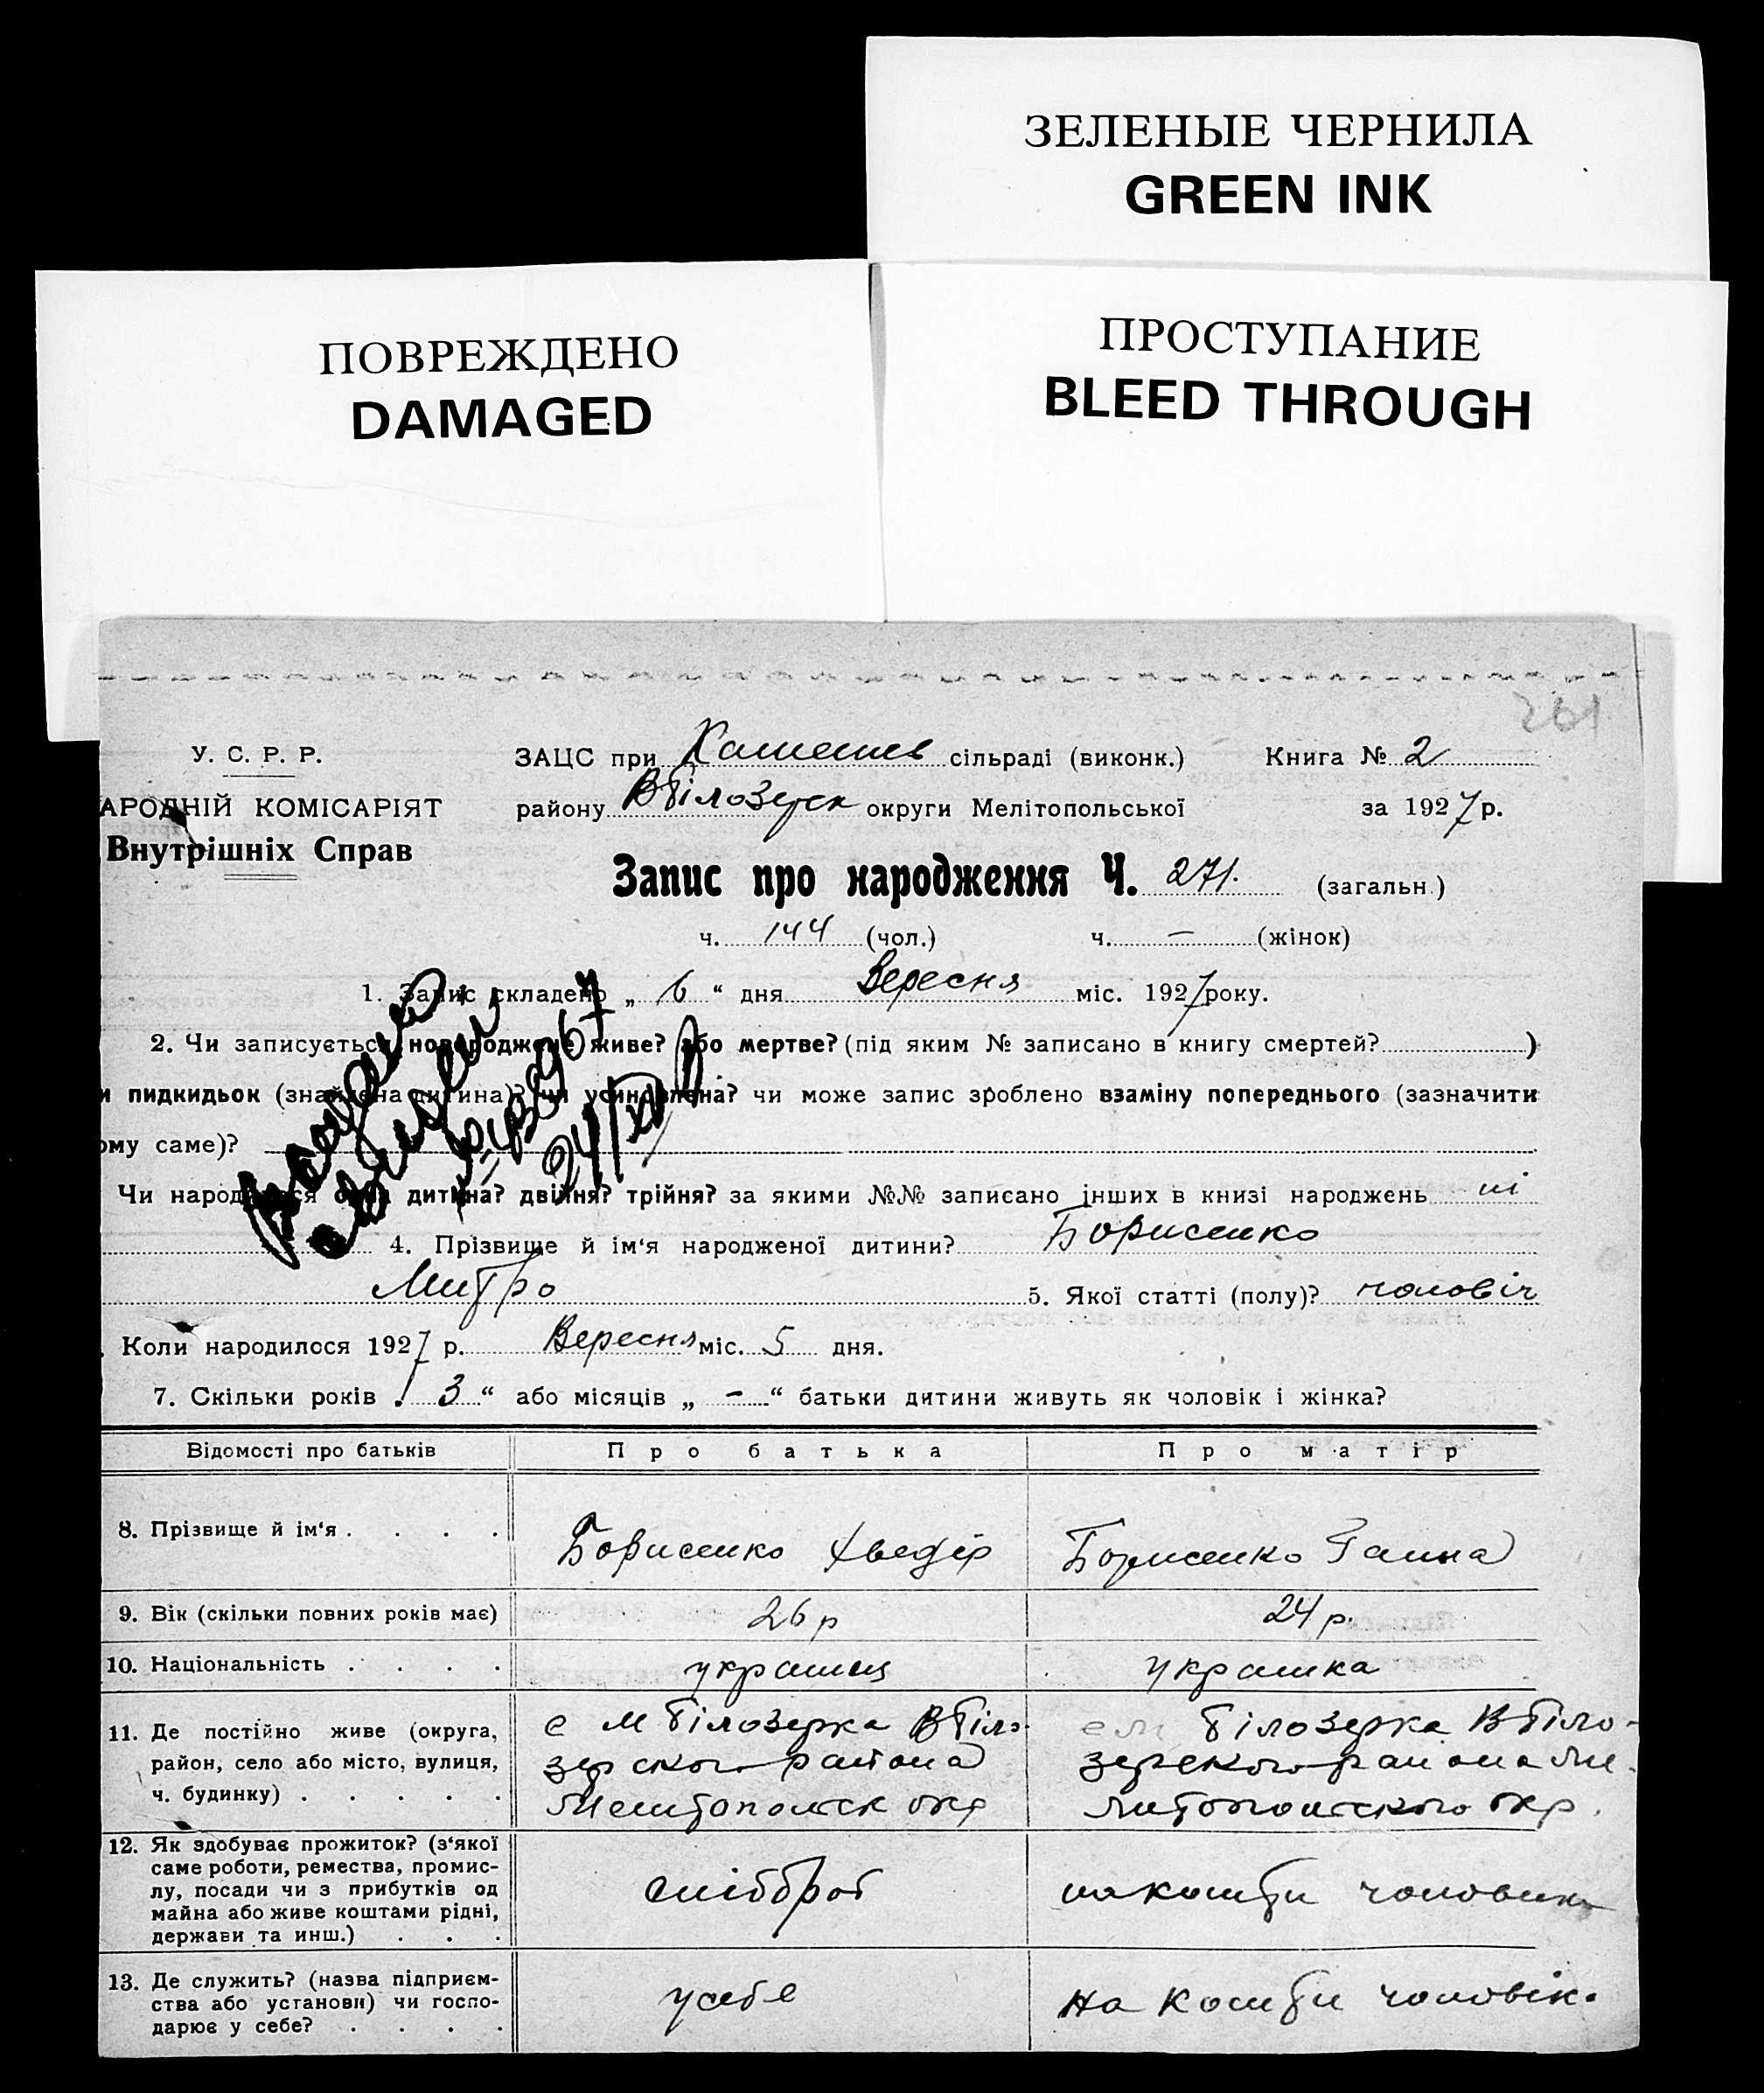 ЗЕЛЕНЫЕ ЧЕРНИЛА
GREEN INK
ПОВРЕЖДЕНО
DAMAGED
ПРОСТУПАНИЕ
BLEED THROUGH
261
У. С. Р. Р. ЗАЦС при сільраді (виконк.) Книга № 2
АРОДНІЙ КОМІСАРІЯТ району ВБілозерск округи Мелітопольської за 1927 р.
Внутрішніх Справ
Запис про народження Ч. 271. (загальн.)
ч. 144 (чол.) ч. — (жінок)
1. Запис складено „ 6 “ дня Вересня міс. 1927 року.
2. Чи записується новороджене живе? або мертве? (під яким № записано в книгу смертей? )
и пидкидьок (знайдена дитина)? чи усиновлена? чи може запис зроблено взаміну попереднього (зазначити
ому саме)?
Чи народилося одна дитина? двійня? трійня? за якими №№ записано інших в книзі народжень ні
4. Прізвище й ім‘я народженої дитини? Борисенко
Митро 5. Якої статті (полу)? чоловіч
. Коли народилося 1927 р. Вересня міс. 5 дня.
7. Скільки років „ 3 “ або місяців „ — “ батьки дитини живуть як чоловік і жінка?
Відомості про батьків Про батька Про матір
8. Прізвище й ім‘я . . . . Борисенко Хведір Борисенко Ганна
9. Вік (скільки повних років має) 26 р 24 р.
10. Національність . . . . українц українка
11. Де постійно живе (округа, с М Білозерка ВБіло- с М Білозерка ВБіло-
район, село або місто, вулиця, зерского района зерского района Ме-
ч. будинку) . . . . . Мелітопольск окр литопольского окр.
12. Як здобуває прожиток? (з‘якої
саме роботи, ремества, промис-
лу, посади чи з прибутків од хлібороб на кошти чоловика
майна або живе коштами рідні,
держави та инш.) . . .
13. Де служить? (назва підприєм-
ства або установи) чи госпо- у себе на кошти чоловіка
дарює у себе? . . . .